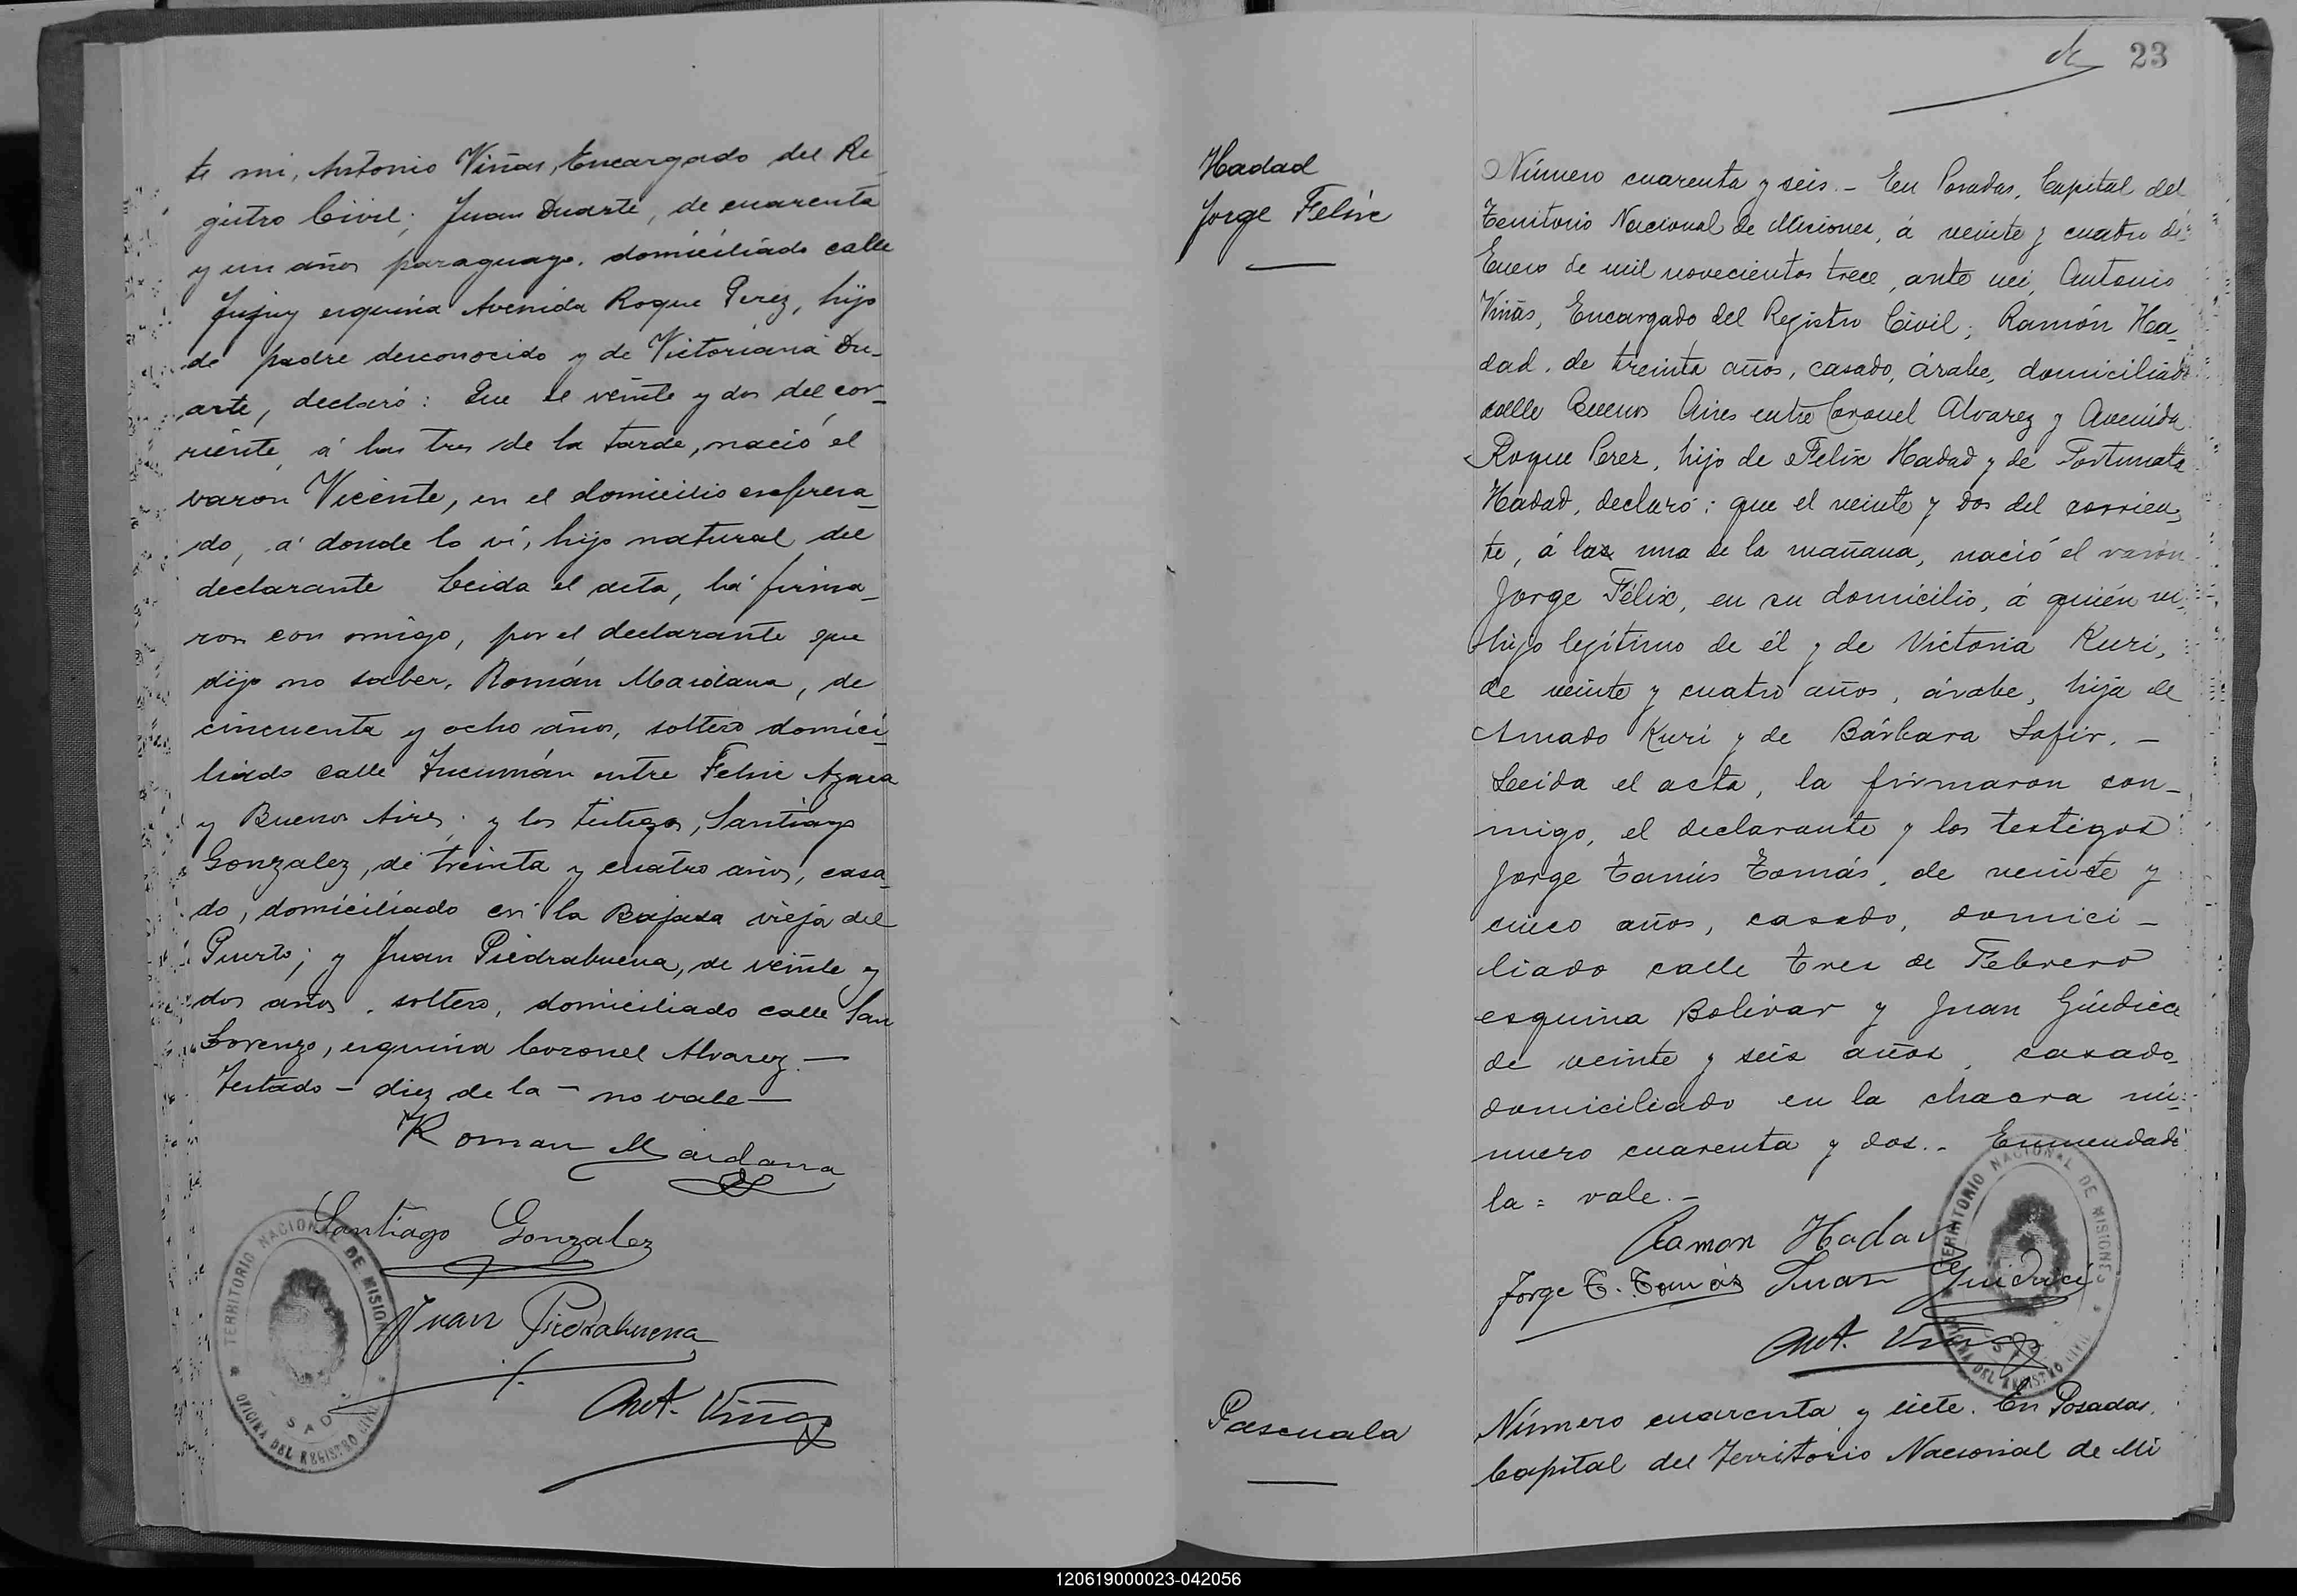 te mi, Antonio Viñas, Encargado del Re_
gistro Civil; Juan Duarte, de cuarenta
y un años paraguayo, domiciliado calle
Jujuy esquina Avenida Roque Perez, hijo
de padre desconocido y de Victoriana Du_
arte, declaró: Que el veinte y dos del cor_
riente, á las tres de la tarde, nació el
varon Vicente, en el domicilio expresa_
do, á donde lo vi, hijo natural del
declarante Leida el acta, la firma_
ron con migo, por el declarante que
dijo no saber, Román Maidana, de
cincuenta y ocho años, soltero domici_
liado calle Tucumán entre Felix Azara
y Buenos Aires; y los testigos, Santiago
Gonzalez, de treinta y cuatro años, casa_
do, domiciliado en la Bajada vieja del
Puerto; y Juan Piedrabuena, de veinte y
dos años, soltero, domiciliado calle San
Lorenzo, esquina Coronel Alvarez. —
Testado — diez de la — no vale —
Roman Maidana
Santiago Gonzalez
Juan Piedrabuena
Ant. Viñas
TERRITORIO NACIONAL DE MISIONES
OFICINA DEL REGISTRO CIVIL
de 23
Hadad
Jorge Felix
Número cuarenta y seis. - En Posadas, Capital del
Territorio Nacional de Misiones, á veinte y cuatro de
Enero de mil novecientos trece, ante mi, Antonio
Viñas, Encargado del Registro Civil; Ramón Ha_
dad, de treinta años, casado, árabe, domiciliado
calle Buenos Aires entre Coronel Alvarez y Avenida
Roque Perez, hijo de Felix Hadad y de Fortunata
Hadad, declaró: que el veinte y dos del corrien_
te, á la una de la mañana, nació el varón
Jorge Félix, en su domicilio, á quién vi,
hijo legítimo de él y de Victoria Kuri,
de veinte y cuatro años, árabe, hija de
Amado Kuri y de Bárbara Safir. —
Leida el acta, la firmaron con_
migo, el declarante y los testigos
Jorge Tanús Tomás, de veinte y
cinco años, casado, domici_
liado calle Tres de Febrero
esquina Bolivar y Juan Giudice
de veinte y seis años, casado,
domiciliado en la chacra nú_
mero cuarenta y dos. - Enmendado
la = vale. -
Ramon Hadad
Jorge T. Tomás Juan Giudici
Ant. Viñas
TERRITORIO NACIONAL DE MISIONES
OFICINA DEL REGISTRO CIVIL
Pascuala
Número cuarenta y siete. En Posadas,
Capital del Territorio Nacional de Mi
120619000023-042056